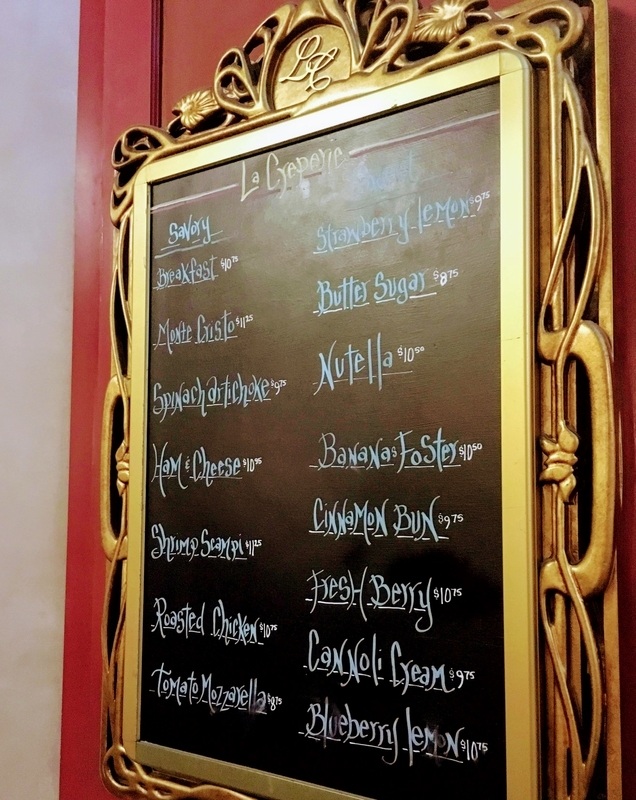 LC
La Creperie
Savory
Breakfast $10.75
Monte Cristo $11.25
Spinach Artichoke $9.75
Ham & Cheese $10.95
Shrimp Scampi $11.25
Roasted Chicken $10.75
Tomato Mozzarella $8.75
Sweet
Strawberry lemon $9.75
Butter Sugar $8.75
Nutella $10.50
Bananas Foster $10.50
Cinnamon Bun $9.75
Fresh Berry $10.75
Cannoli Cream $9.75
Blueberry lemon $10.75